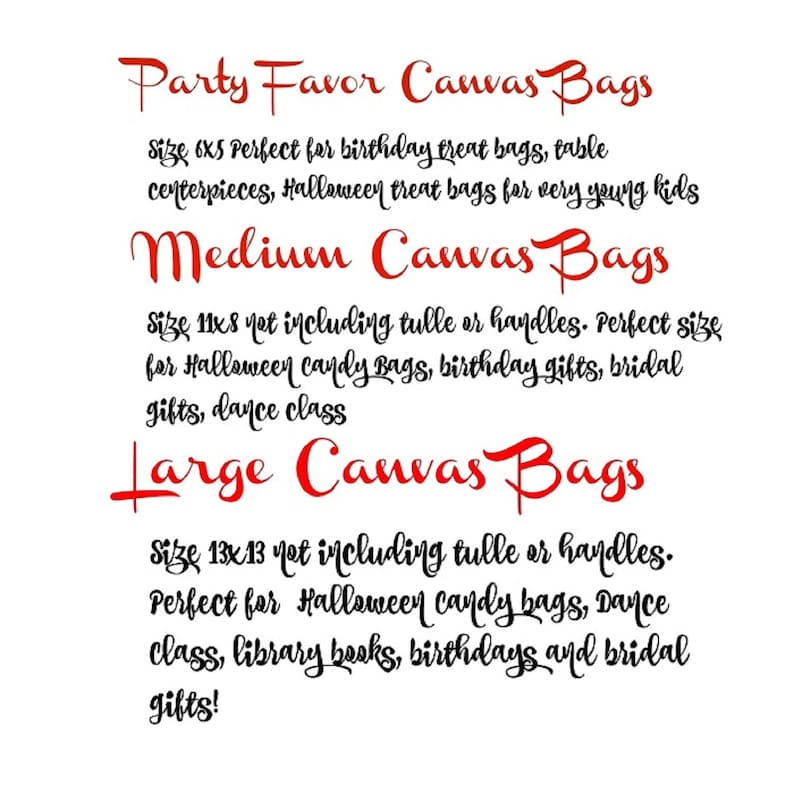 Party Favor Canvas Bags
Size 6X5 Perfect for birthday treat bags, table
centerpieces, Halloween treat bags for very young kids
Medium Canvas Bags
Size 11x8 not including tulle or handles. Perfect size
for Halloween Candy Bags, birthday gifts, bridal
gifts, dance class
Large Canvas Bags
Size 13x13 not including tulle or handles.
Perfect for Halloween candy bags, Dance
class, library books, birthdays and bridal
gifts!